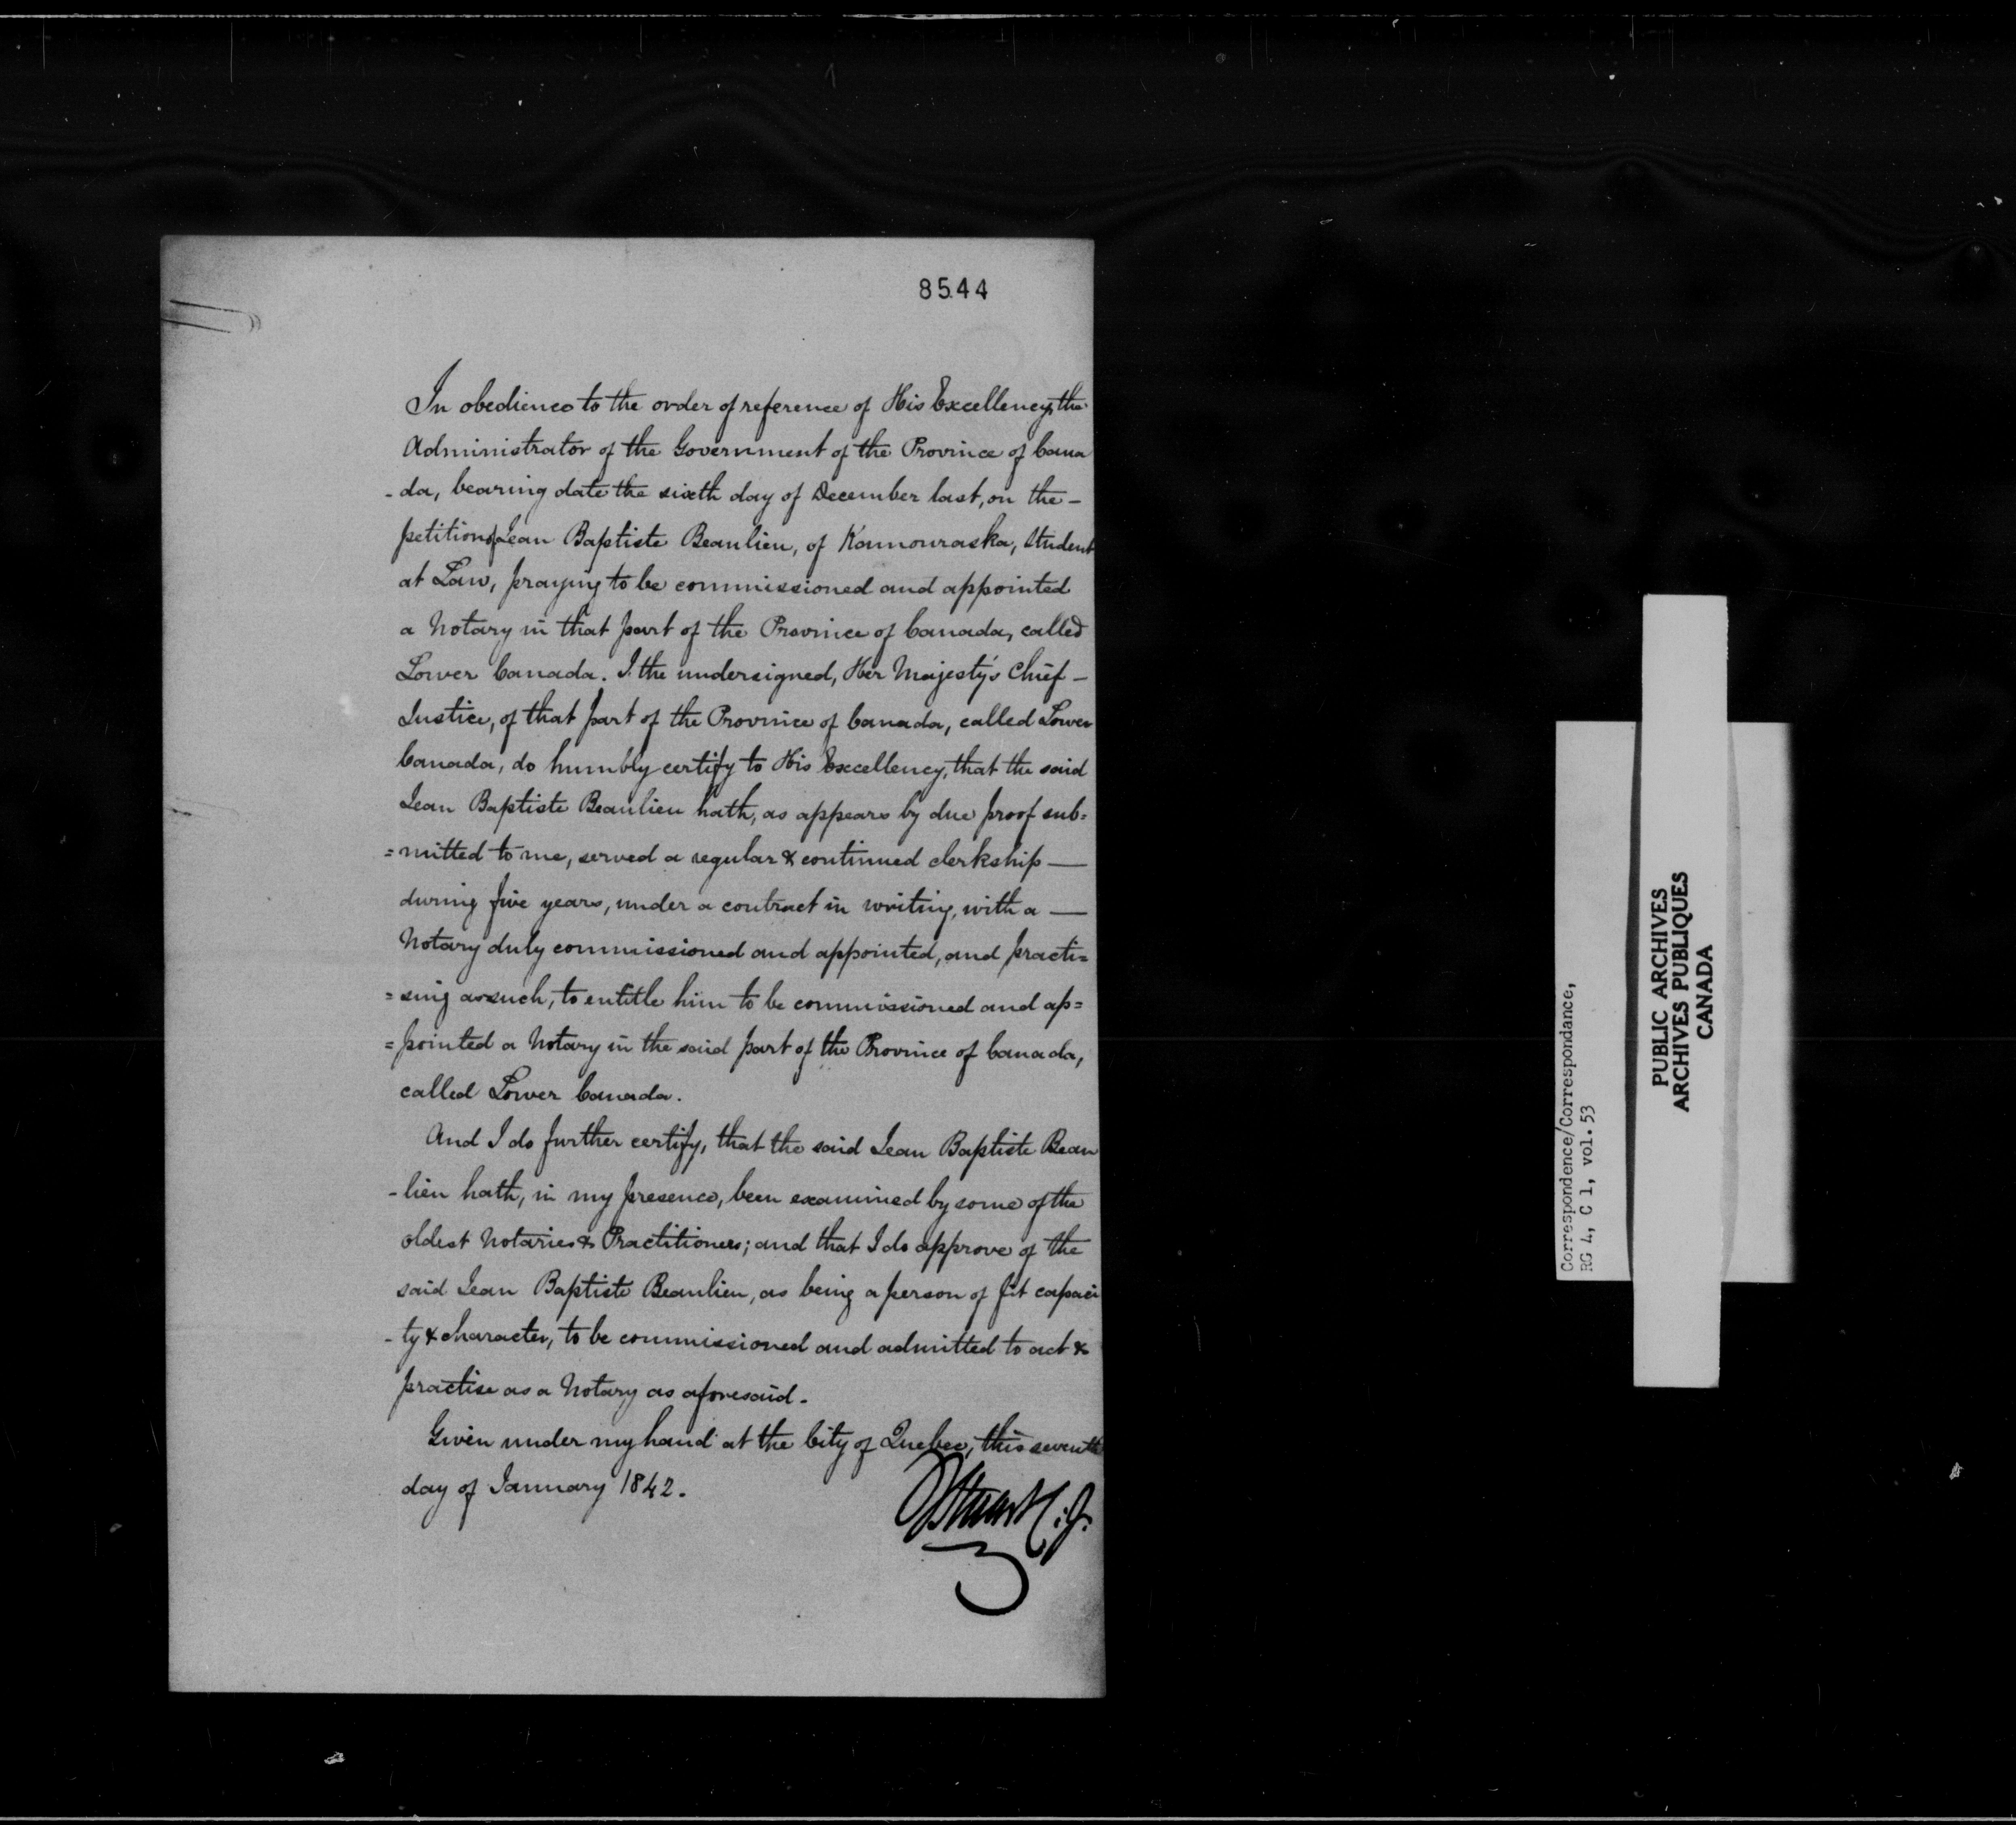 8544
In obedience to the order of reference of His Excellency, the
Administrator of the Government of the Province of Cana
-da, bearing date the sixth day of December last, on the -
petition of Jean Baptiste Beaulieu, of Kamouraska, Student
at Law, praying to be commissioned and appointed
a Notary in that part of the Province of Canada, called
Lower Canada. I the undersigned, Her Majesty's Chief -
Justice, of that part of the Province of Canada, called Lower
Canada, do humbly certify to His Excellency, that the said
Jean Baptiste Beaulieu hath, as appears by due proof sub=
=mitted to me, served a regular & continued clerkship —
during five years, under a contract in writing, with a —
Notary duly commissioned and appointed, and practi=
=sing as such, to entitle him to be commissioned and ap=
=pointed a Notary in the said part of the Province of Canada,
called Lower Canada.
And I do further certify, that the said Jean Baptiste Beau
-lieu hath, in my presence, been examined by some of the
oldest Notaries & Practitioners; and that I do approve of the
said Jean Baptiste Beaulieu, as being a person of fit capaci
-ty & character, to be commissioned and admitted to act &
practise as a Notary as aforesaid.
Given under my hand at the City of Quebec, this seventh
day of January 1842.
J Stuart C.J.
Correspondence/Correspondance,
RG 4, C 1, vol. 53
PUBLIC ARCHIVES
ARCHIVES PUBLIQUES
CANADA